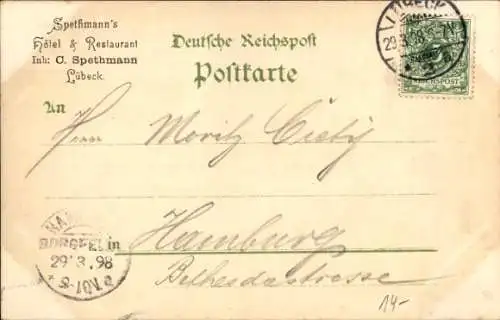 Spethmann's
Hôtel & Restaurant
Inh: C. Spethmann
Lübeck.
Deutsche Reichspost
Postkarte
LÜBECK
29.3.98
REICHSPOST
An
Herrn Moritz
in
Hamburg
Bethesdastrasse
BORGFEL
29.3.98
14-